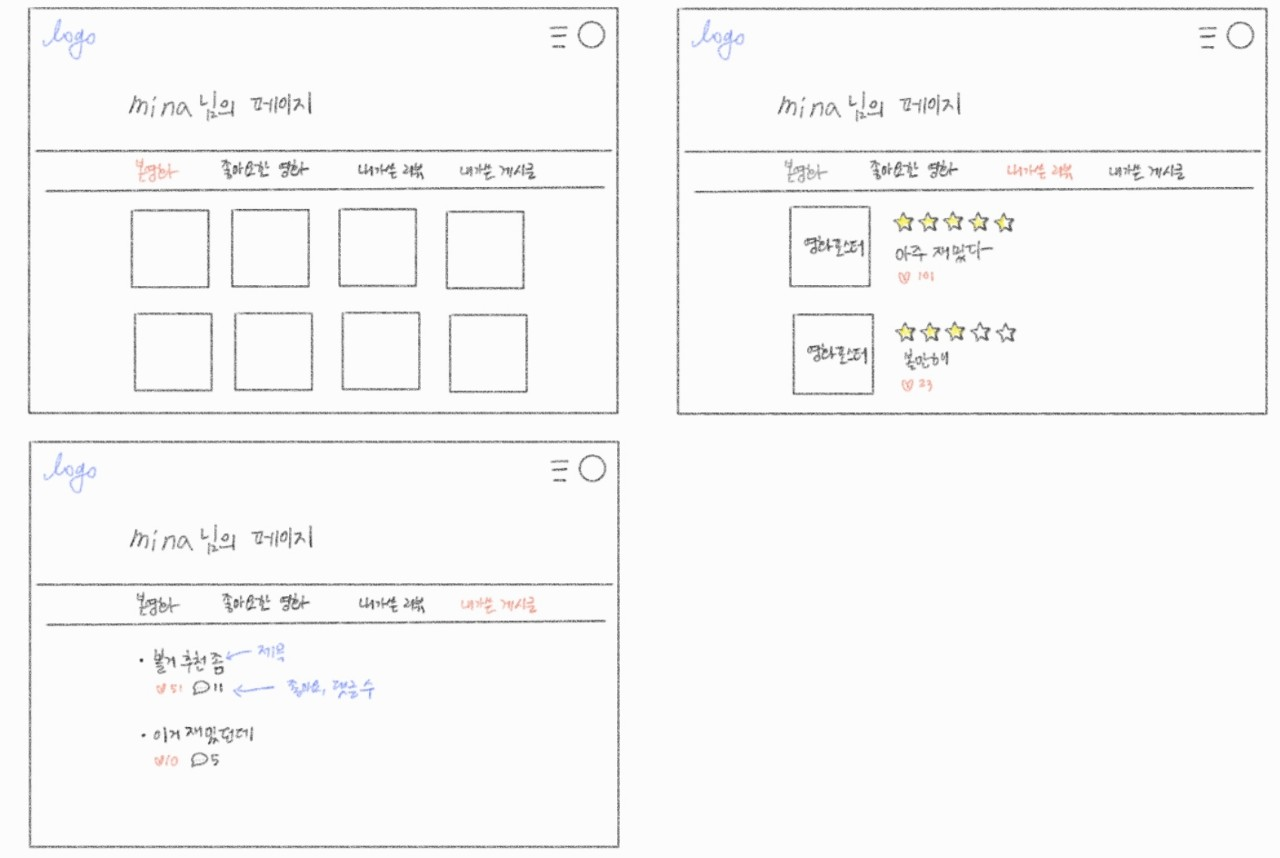 logo
mina님의 페이지
본영화 좋아요한 영화 내가쓴 리뷰 내가쓴 게시글
logo
mina님의 페이지
본영화 좋아요한 영화 내가쓴 리뷰 내가쓴 게시글
영화포스터
아주 재밌다~
101
영화포스터
볼만해
23
logo
mina님의 페이지
본영화 좋아요한 영화 내가쓴 리뷰 내가쓴 게시글
• 볼거 추천 좀 ← 제목
51 11 ← 좋아요, 댓글 수
• 이거 재밌던데
10 5